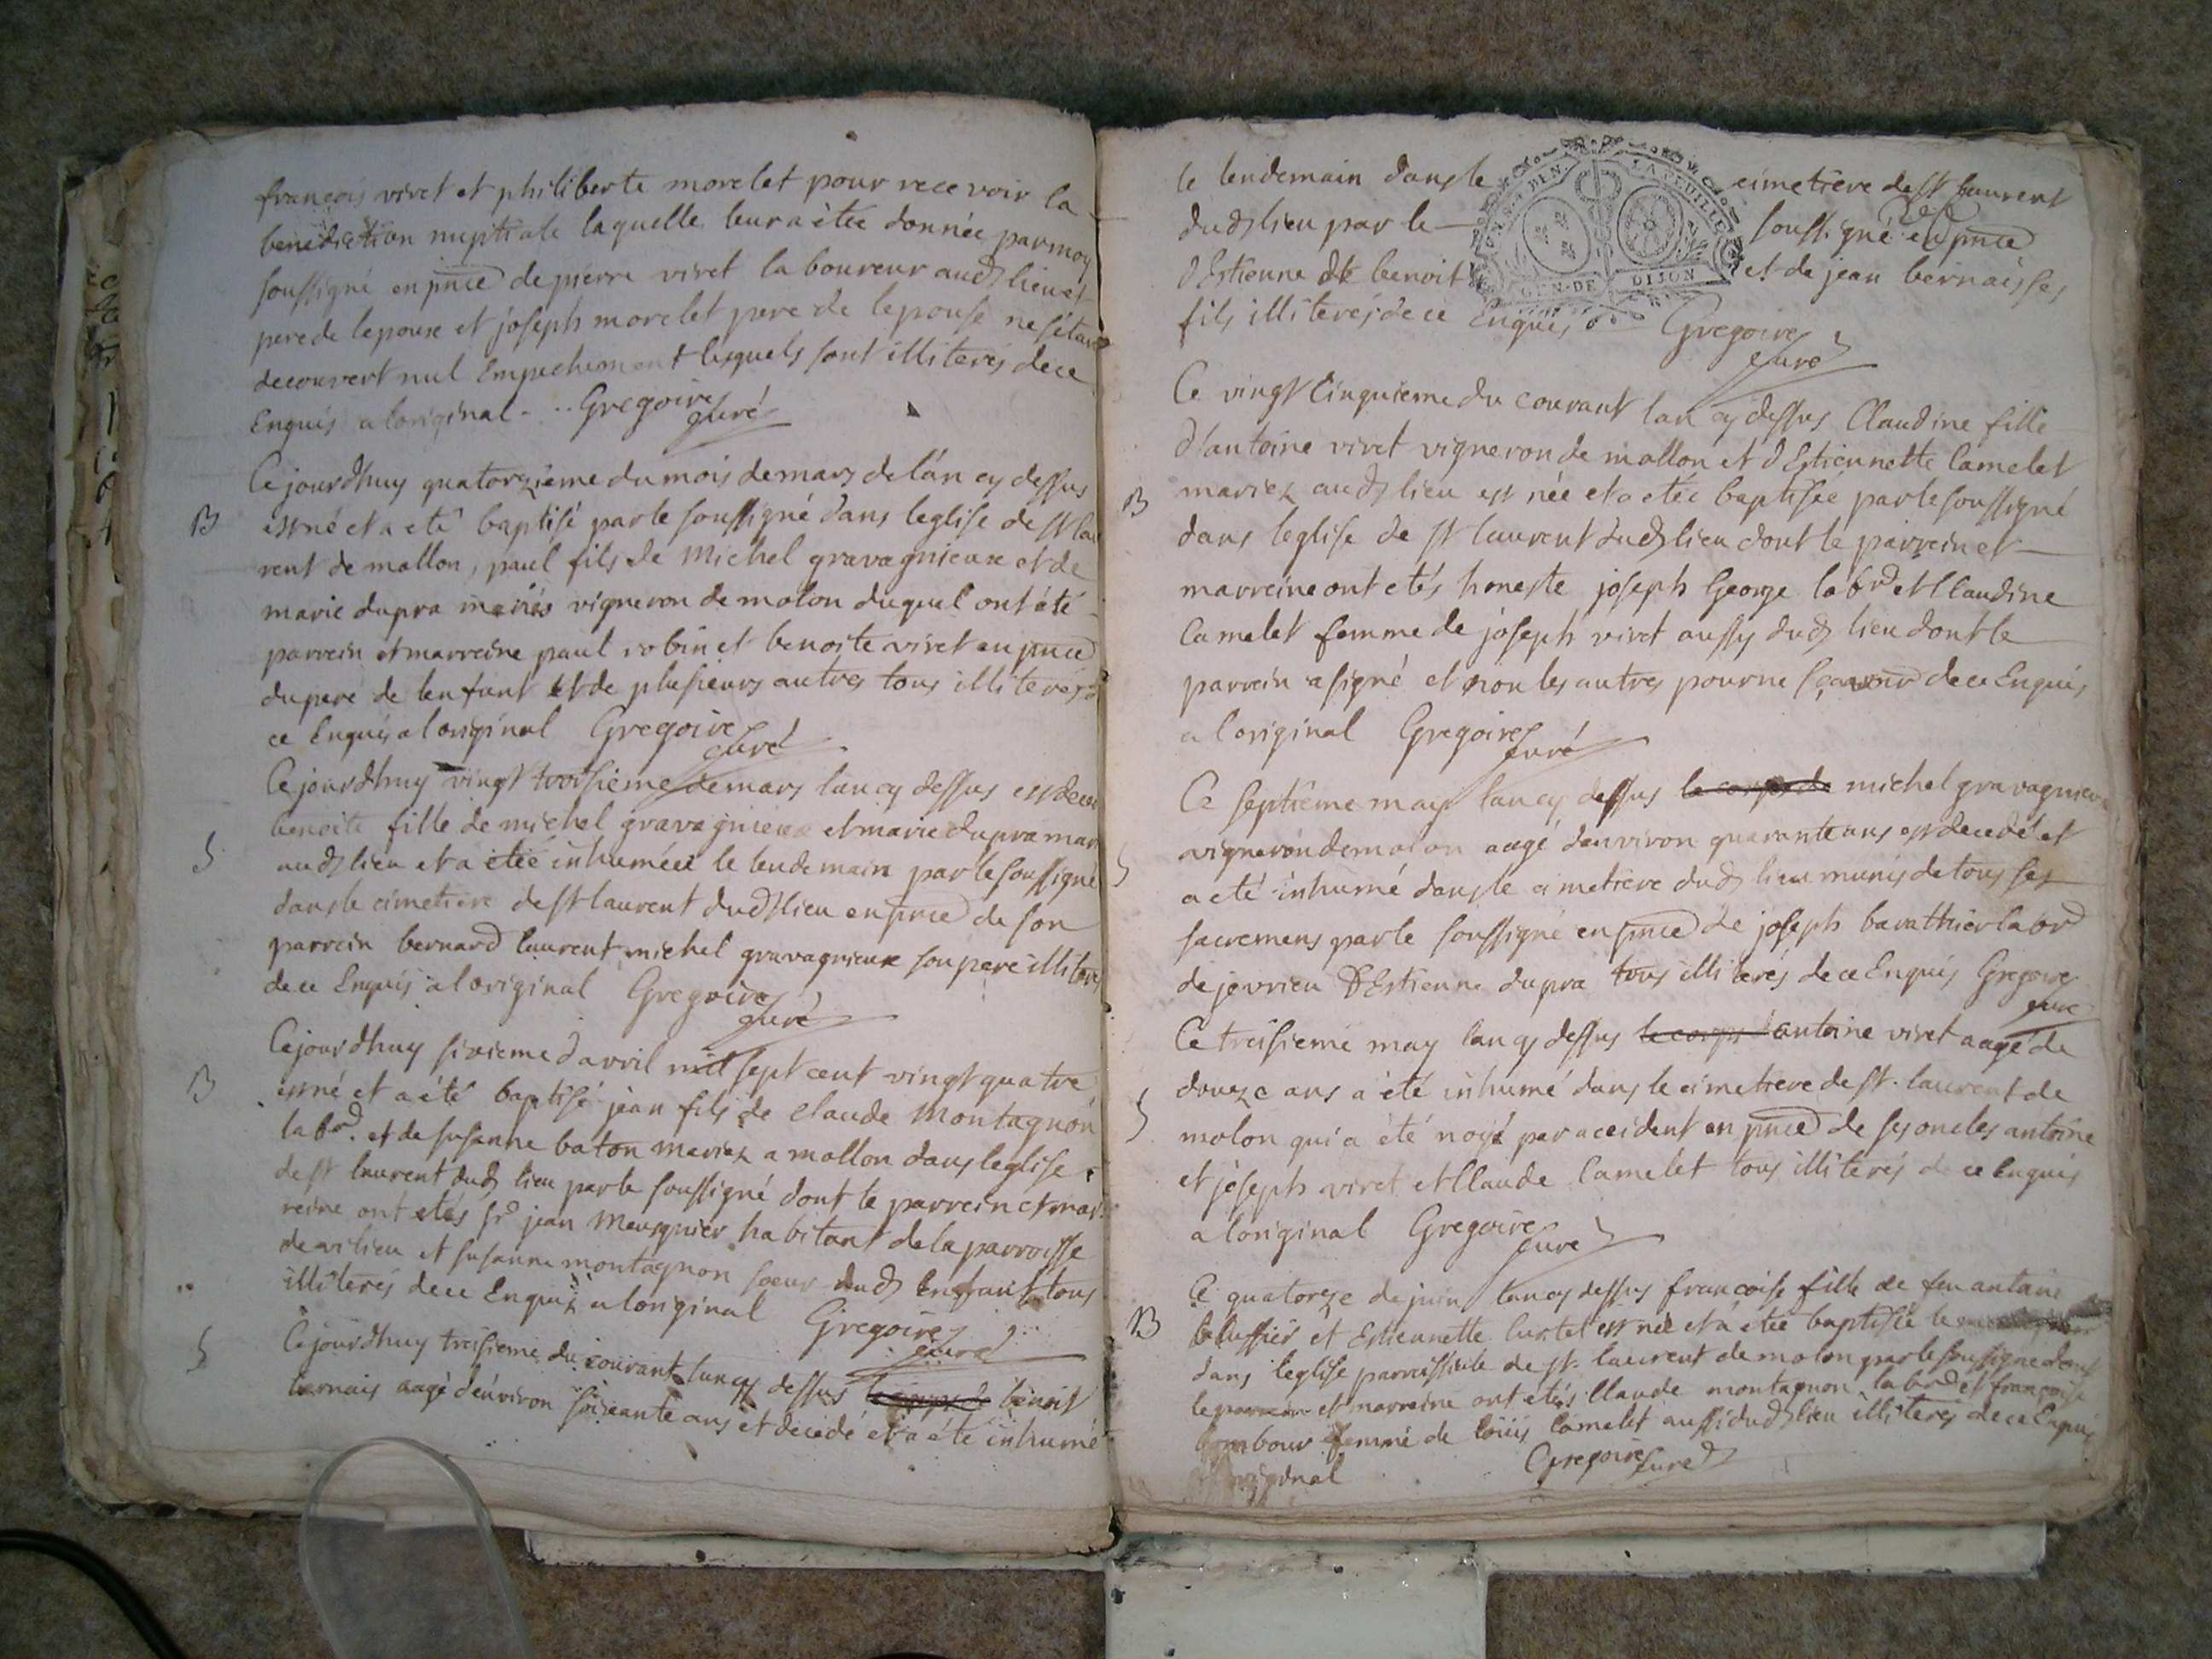 francois viret et philiberte morelet pour recevoir la
benediction nuptiale laquelle leur a étée donnée par moy
soussigné en pnce de pierre viret laboureur aud lieu et
pere de lepoux et joseph morelet pere de lepouse ne sétant
decouvert nul Empechement lesquels sont illiterés de ce
Enquis a loriginal - .. Gregoire
curé
Cejourdhuy quatorzième du mois de mars de lán cy dessus
B
est né et a eté baptisé par le soussigné dans leglise de st lau
rent de mallon, paul fils de Michel gravagnieux et de
marie dupra mariés vigneron de molon duquel ont été
parrein et marreine paul robin et benoite viret en pnce
du pere de lenfant et de plusieurs autres tous illiterés d
ce Enquis a loriginal Gregoire
curé
Cejourdhuy vingt troisieme de mars lan cy dessus est decedé
benoite fille de michel gravagnieux et marie dupra mar
S
aud lieu et a étée inhumée le lendemain par le soussigné
dans le cimetiere de st laurent dud lieu en pnce de son
parrein bernard laurent michel gravagnieux son pere illiteré
de ce Enquis a loriginal Gregoire
curé
Cejourdhuy sixieme d avril mil sept cent vingt quatre
B
est né et a été baptisé jean fils de claude Montagnon
labr. et de susanne baton mariez a mallon dans leglise
de st laurent dud lieu par le soussigné dont le parrein et mar
reine ont etés sr jean Meusnier habitant de la parroisse
de vilieu et susanne montagnon soeur dud enfant tous
illiterés de ce Enquis a loriginal Gregoire
curé
S
Cejourdhuy treisieme du courant lan cy dessus le corps de benoit
bernais aagé denviron soixante ans et decedé et a été inhumé
le lendemain dans le cimetiere de st laurent
dud lieu par le soussigné en pnce
dEstienne benoit et de jean bernais ses
fils illiterés de ce Enquis Gregoire
curé
GEN. DE DIJON
Ce vingt Cinquieme du courant lan cy dessus Claudine fille
d'antoine viret vigneron de mallon et dEstiennette Camelet
B
mariez aud lieu est née et a etée baptisée par le soussigné
dans leglise de st laurent dud lieu dont le parrein et
marreine ont etés honeste joseph George labr et Claudine
Camelet femme de joseph viret aussy dud lieu dont le
parrein a signé et non les autres pour ne sçavoir de ce Enquis
a loriginal Gregoire
curé
Ce septieme may lan cy dessus le corps de michel gravagnieux
vigneron de molon aagé denviron quarante ans est decedé et
S
a eté inhumé dans le cimetiere dud lieu munis de tous ses
sacremens par le soussigné en pnce de joseph barathier labr
de jevrieu dEstienne dupra tous illiterés de ce Enquis Gregoire
curé
Ce treisieme may lan cy dessus le corps d antoine viret aagé de
douze ans a été inhumé dans le cimetiere de st. laurent de
S
molon qui a été noyé par accident en pnce de ses oncles antoine
et joseph viret et Claude Camelet tous illiterés de ce Enquis
a loriginal Gregoire
curé
Ce quatorze de juin lan cy dessus francoise fille de feu antoine
B
belussier et Estiennette est née et a étée baptisée le
dans leglise parroissiale de st. laurent de molon par le soussigné dont
le parrein et marreine ont etés Claude montagnon labr et françoise
femme de louis Camelet aussi dud lieu illiterés de ce Enquis
original Gregoire curé